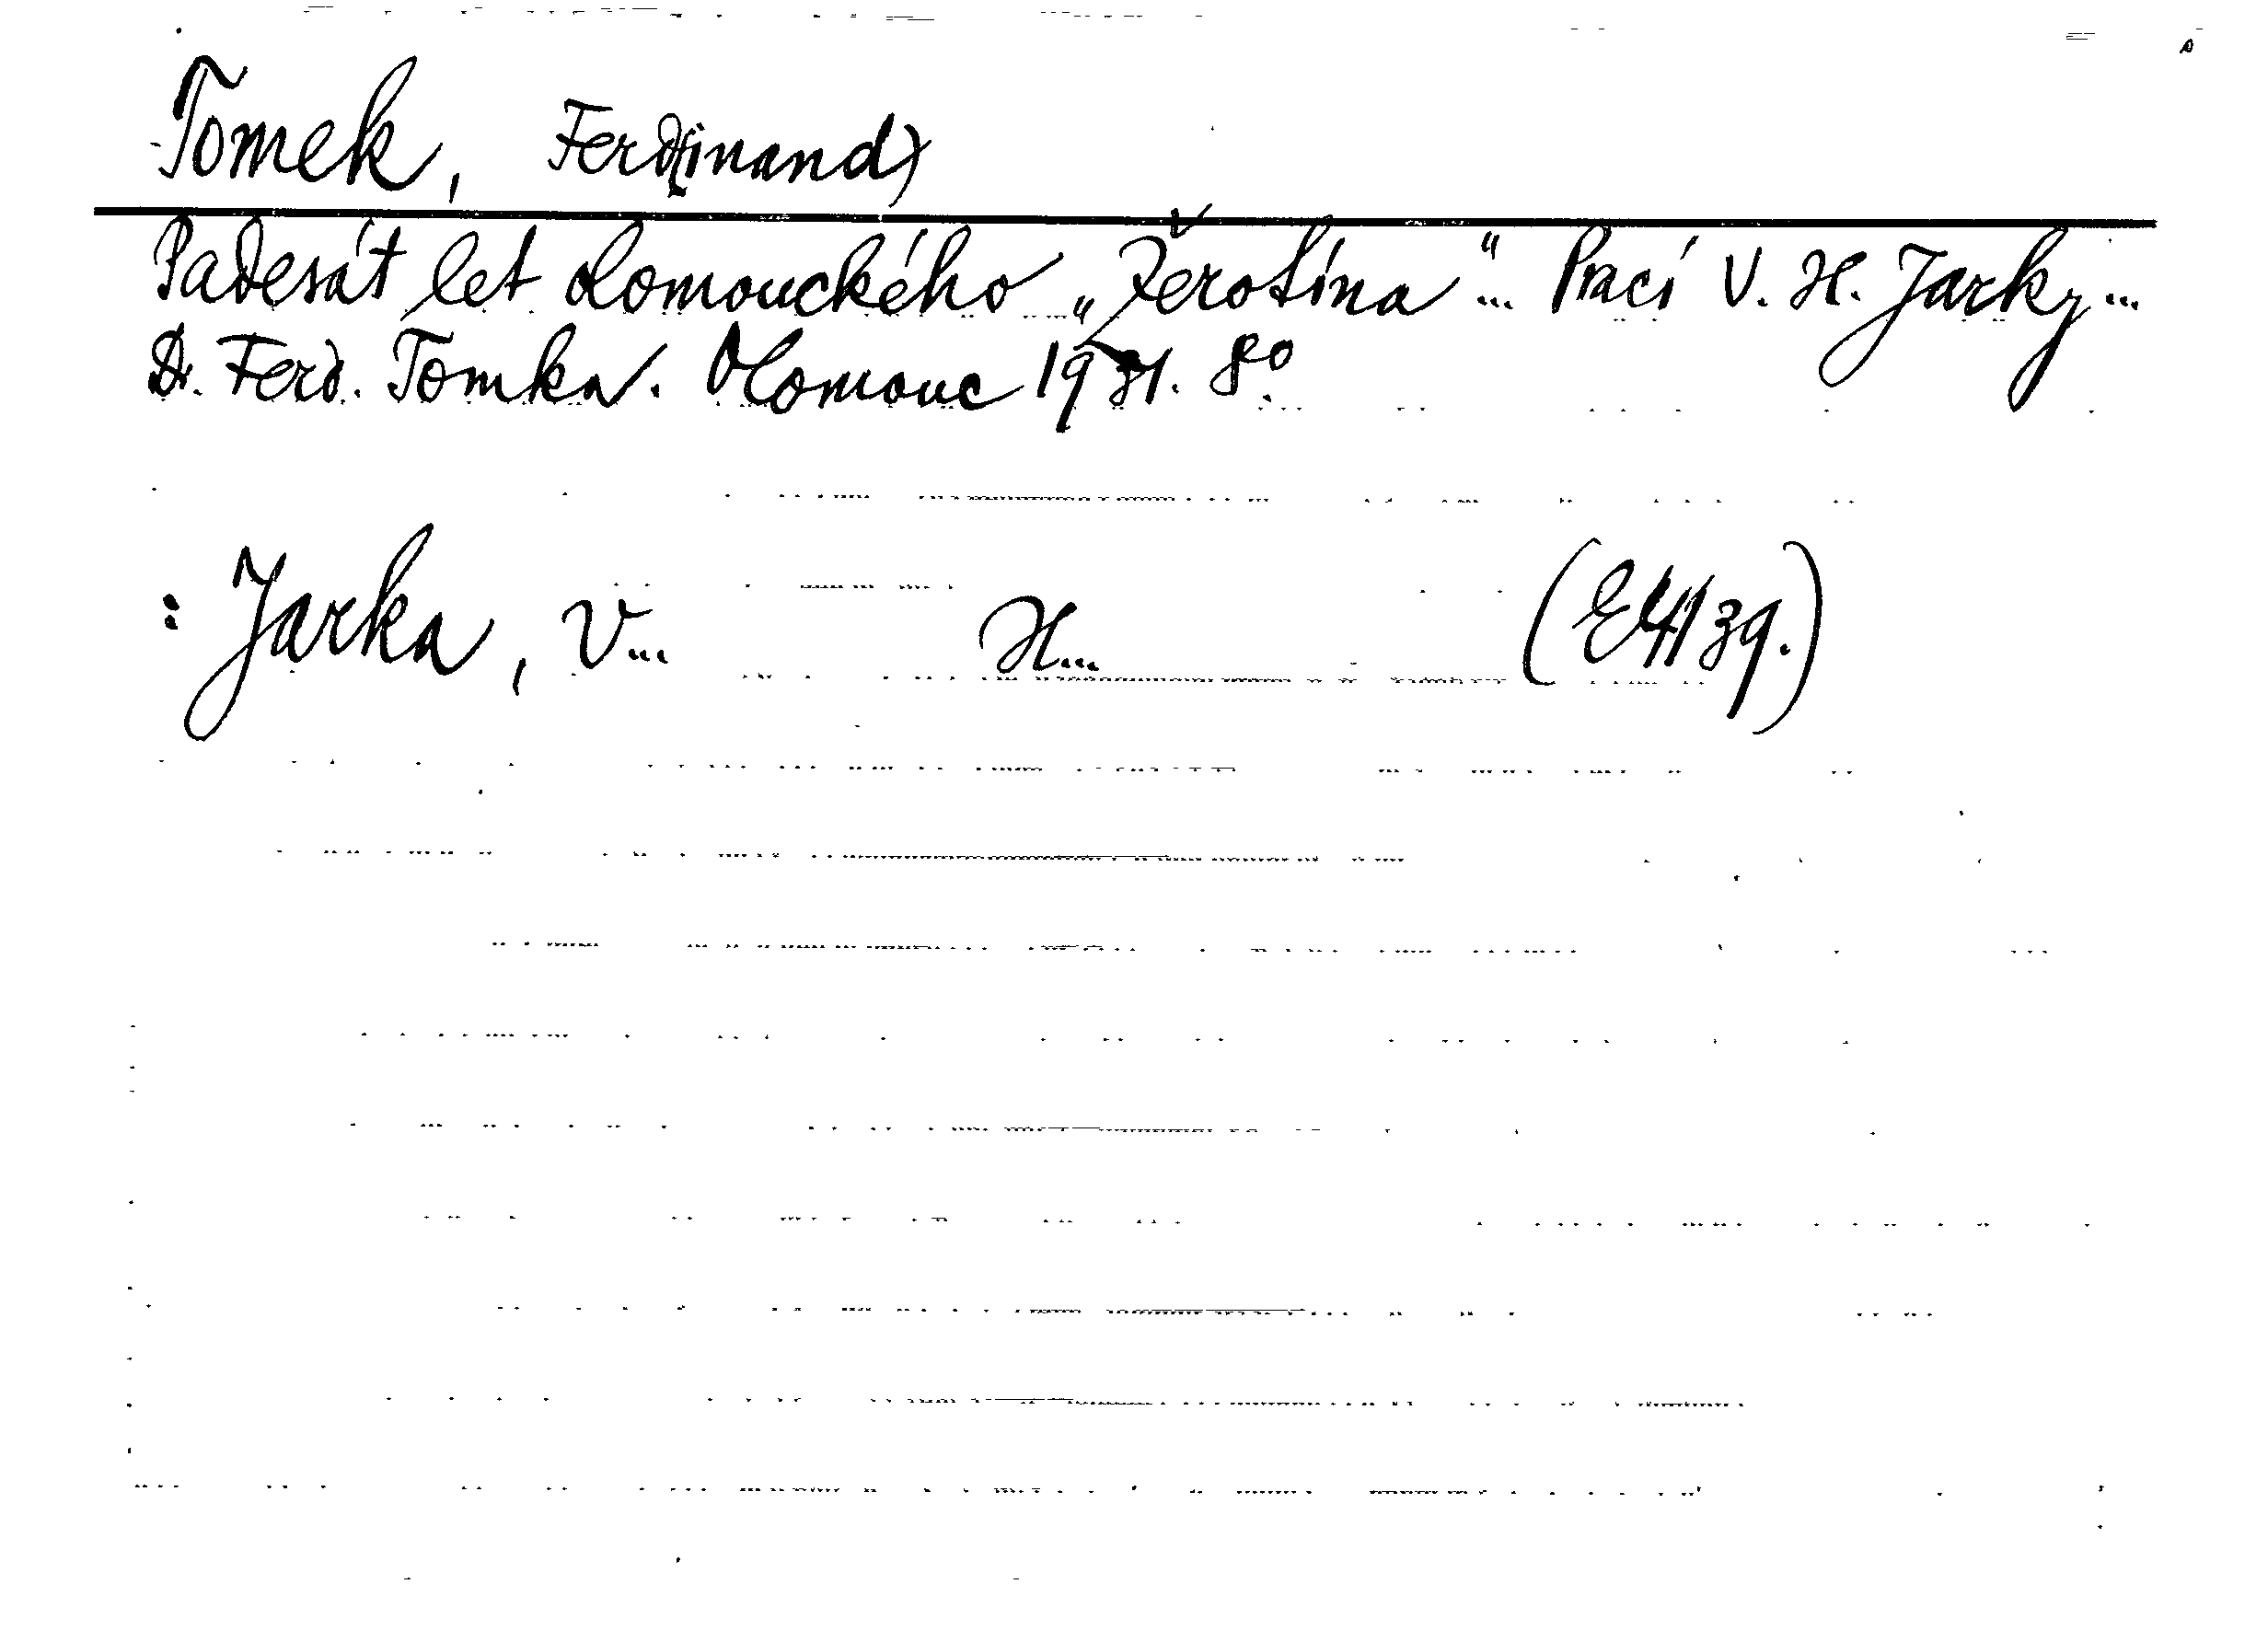 Tomek, Ferd(inand)
Padesát let olomouckého „Žerotína“... Prací V. H. Jarky...
Dr. Ferd. Tomka. Olomouc 1931. 8°.
: Jarka, V... H... (E4139.)